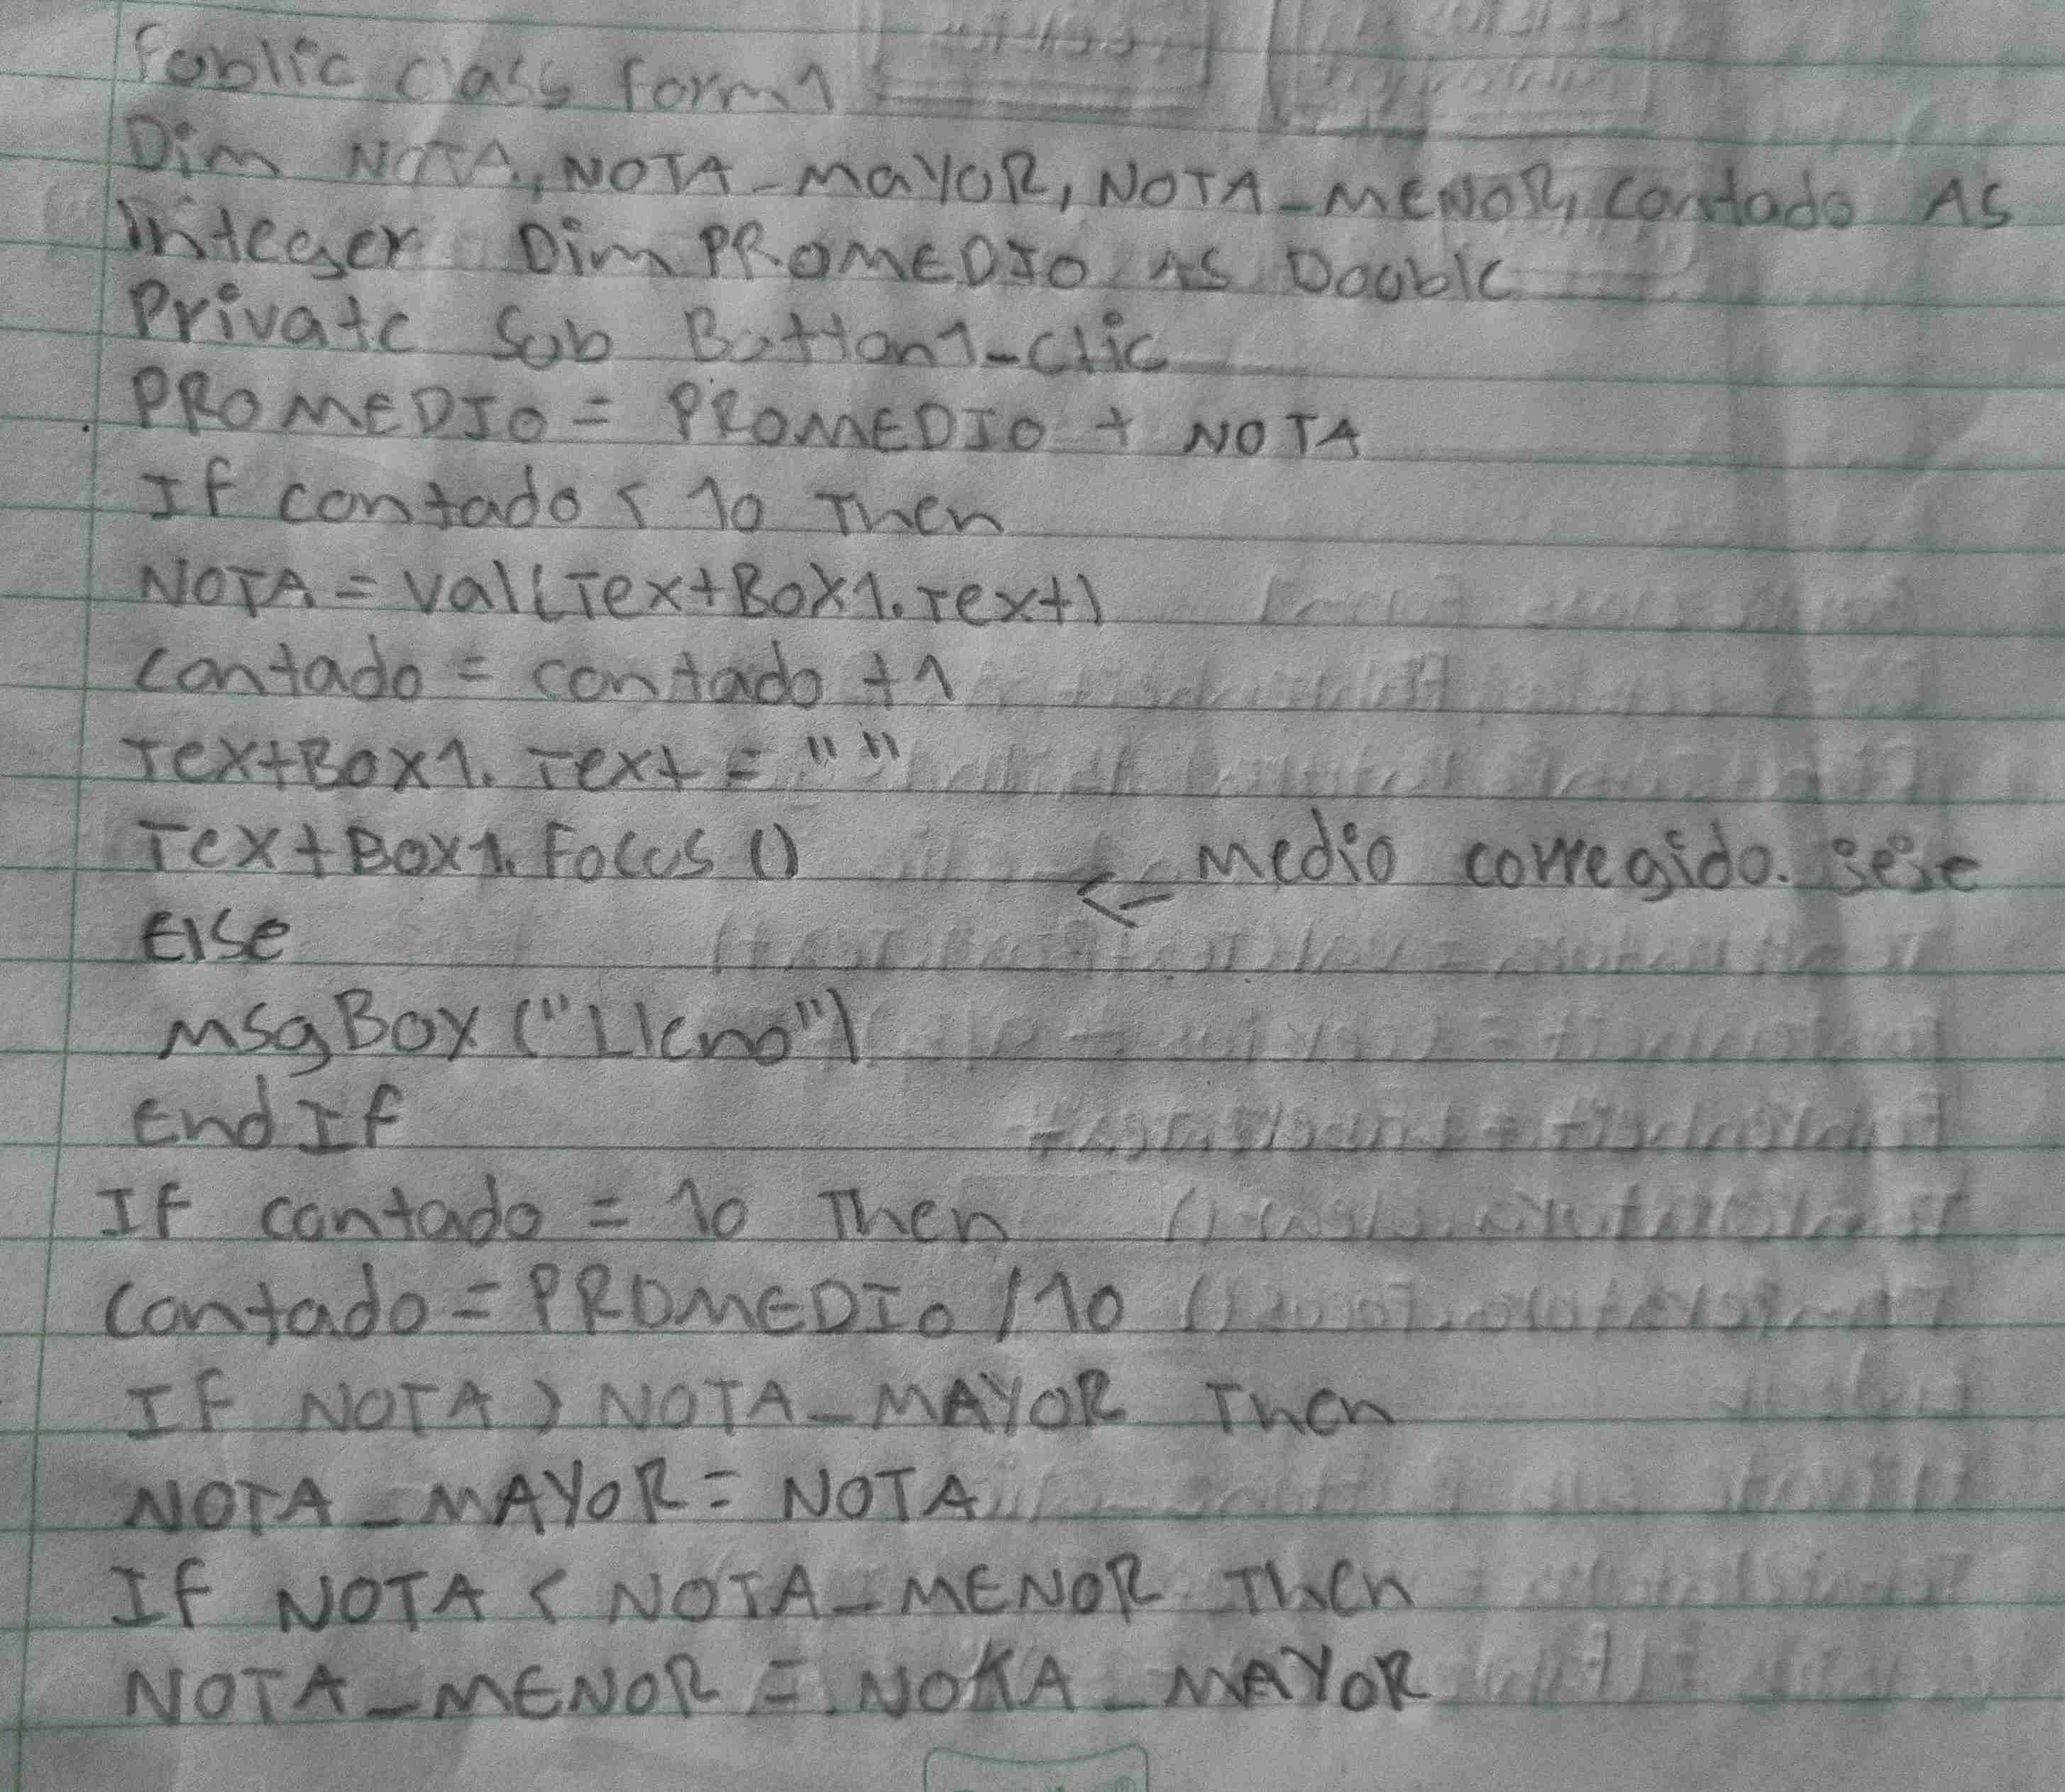 Public class form1
Dim NOTA, NOTA_MAYOR, NOTA_MENOR, contado As
Integer Dim PROMEDIO As Double
Private Sub Botton1_Clic
PROMEDIO = PROMEDIO + NOTA
If contado < 10 Then
NOTA = Val(TextBox1.Text)
contado = contado + 1
TextBox1.Text = " "
TextBox1.Focus () <- medio corregido. sese
Else
MsgBox ("Lleno")
End If
If contado = 10 Then
contado = PROMEDIO / 10
If NOTA > NOTA_MAYOR Then
NOTA_MAYOR = NOTA
If NOTA < NOTA_MENOR Then
NOTA_MENOR = NOTA_MAYOR